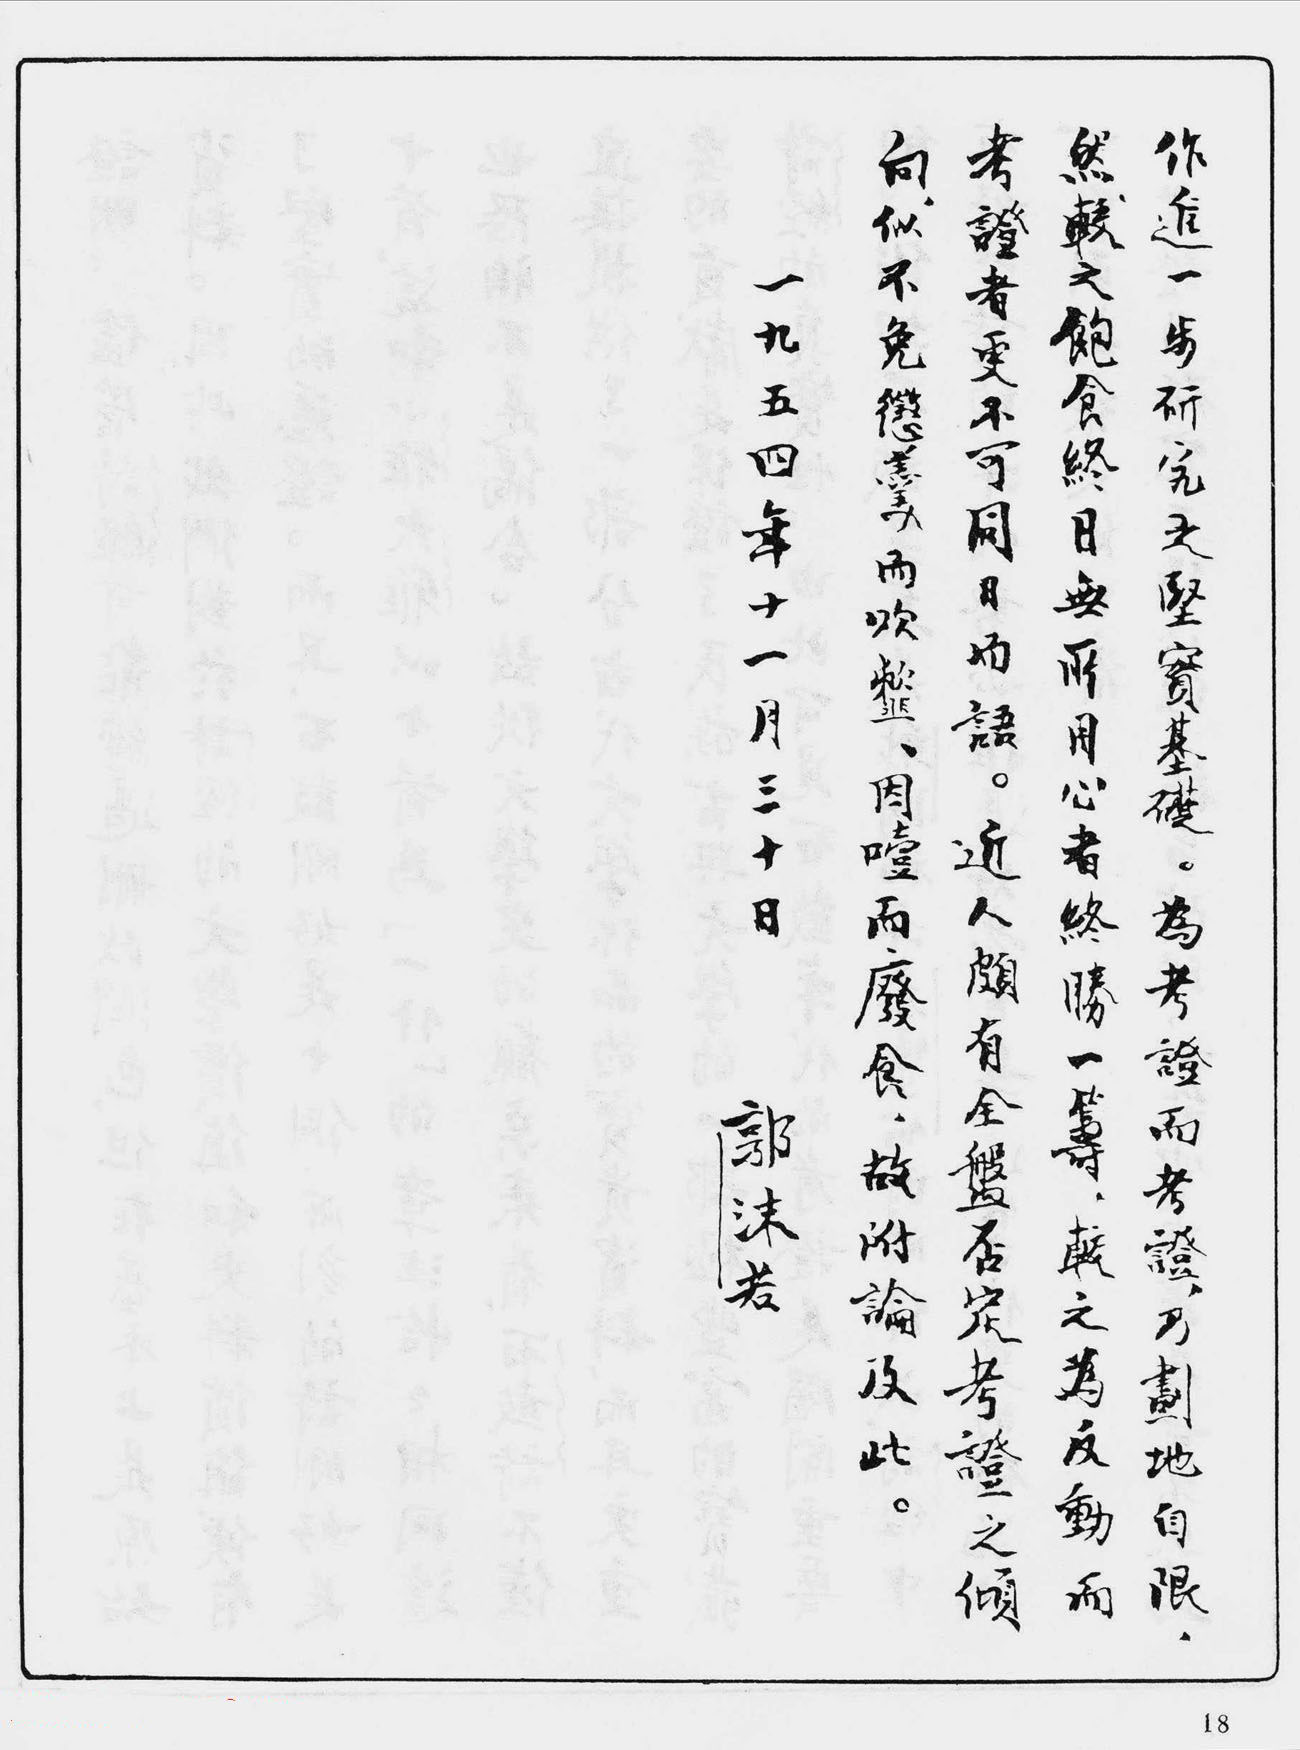 作進一步研究之堅實基礎。為考證而考證，乃劃地自限，
然較之飽食終日無所用心者終勝一籌，較之為反動而
考證者更不可同日而語。近人頗有全盤否定考證之傾
向，似不免懲羹而吹虀、因噎而廢食，故附論及此。
一九五四年十一月三十日
郭沫若
18